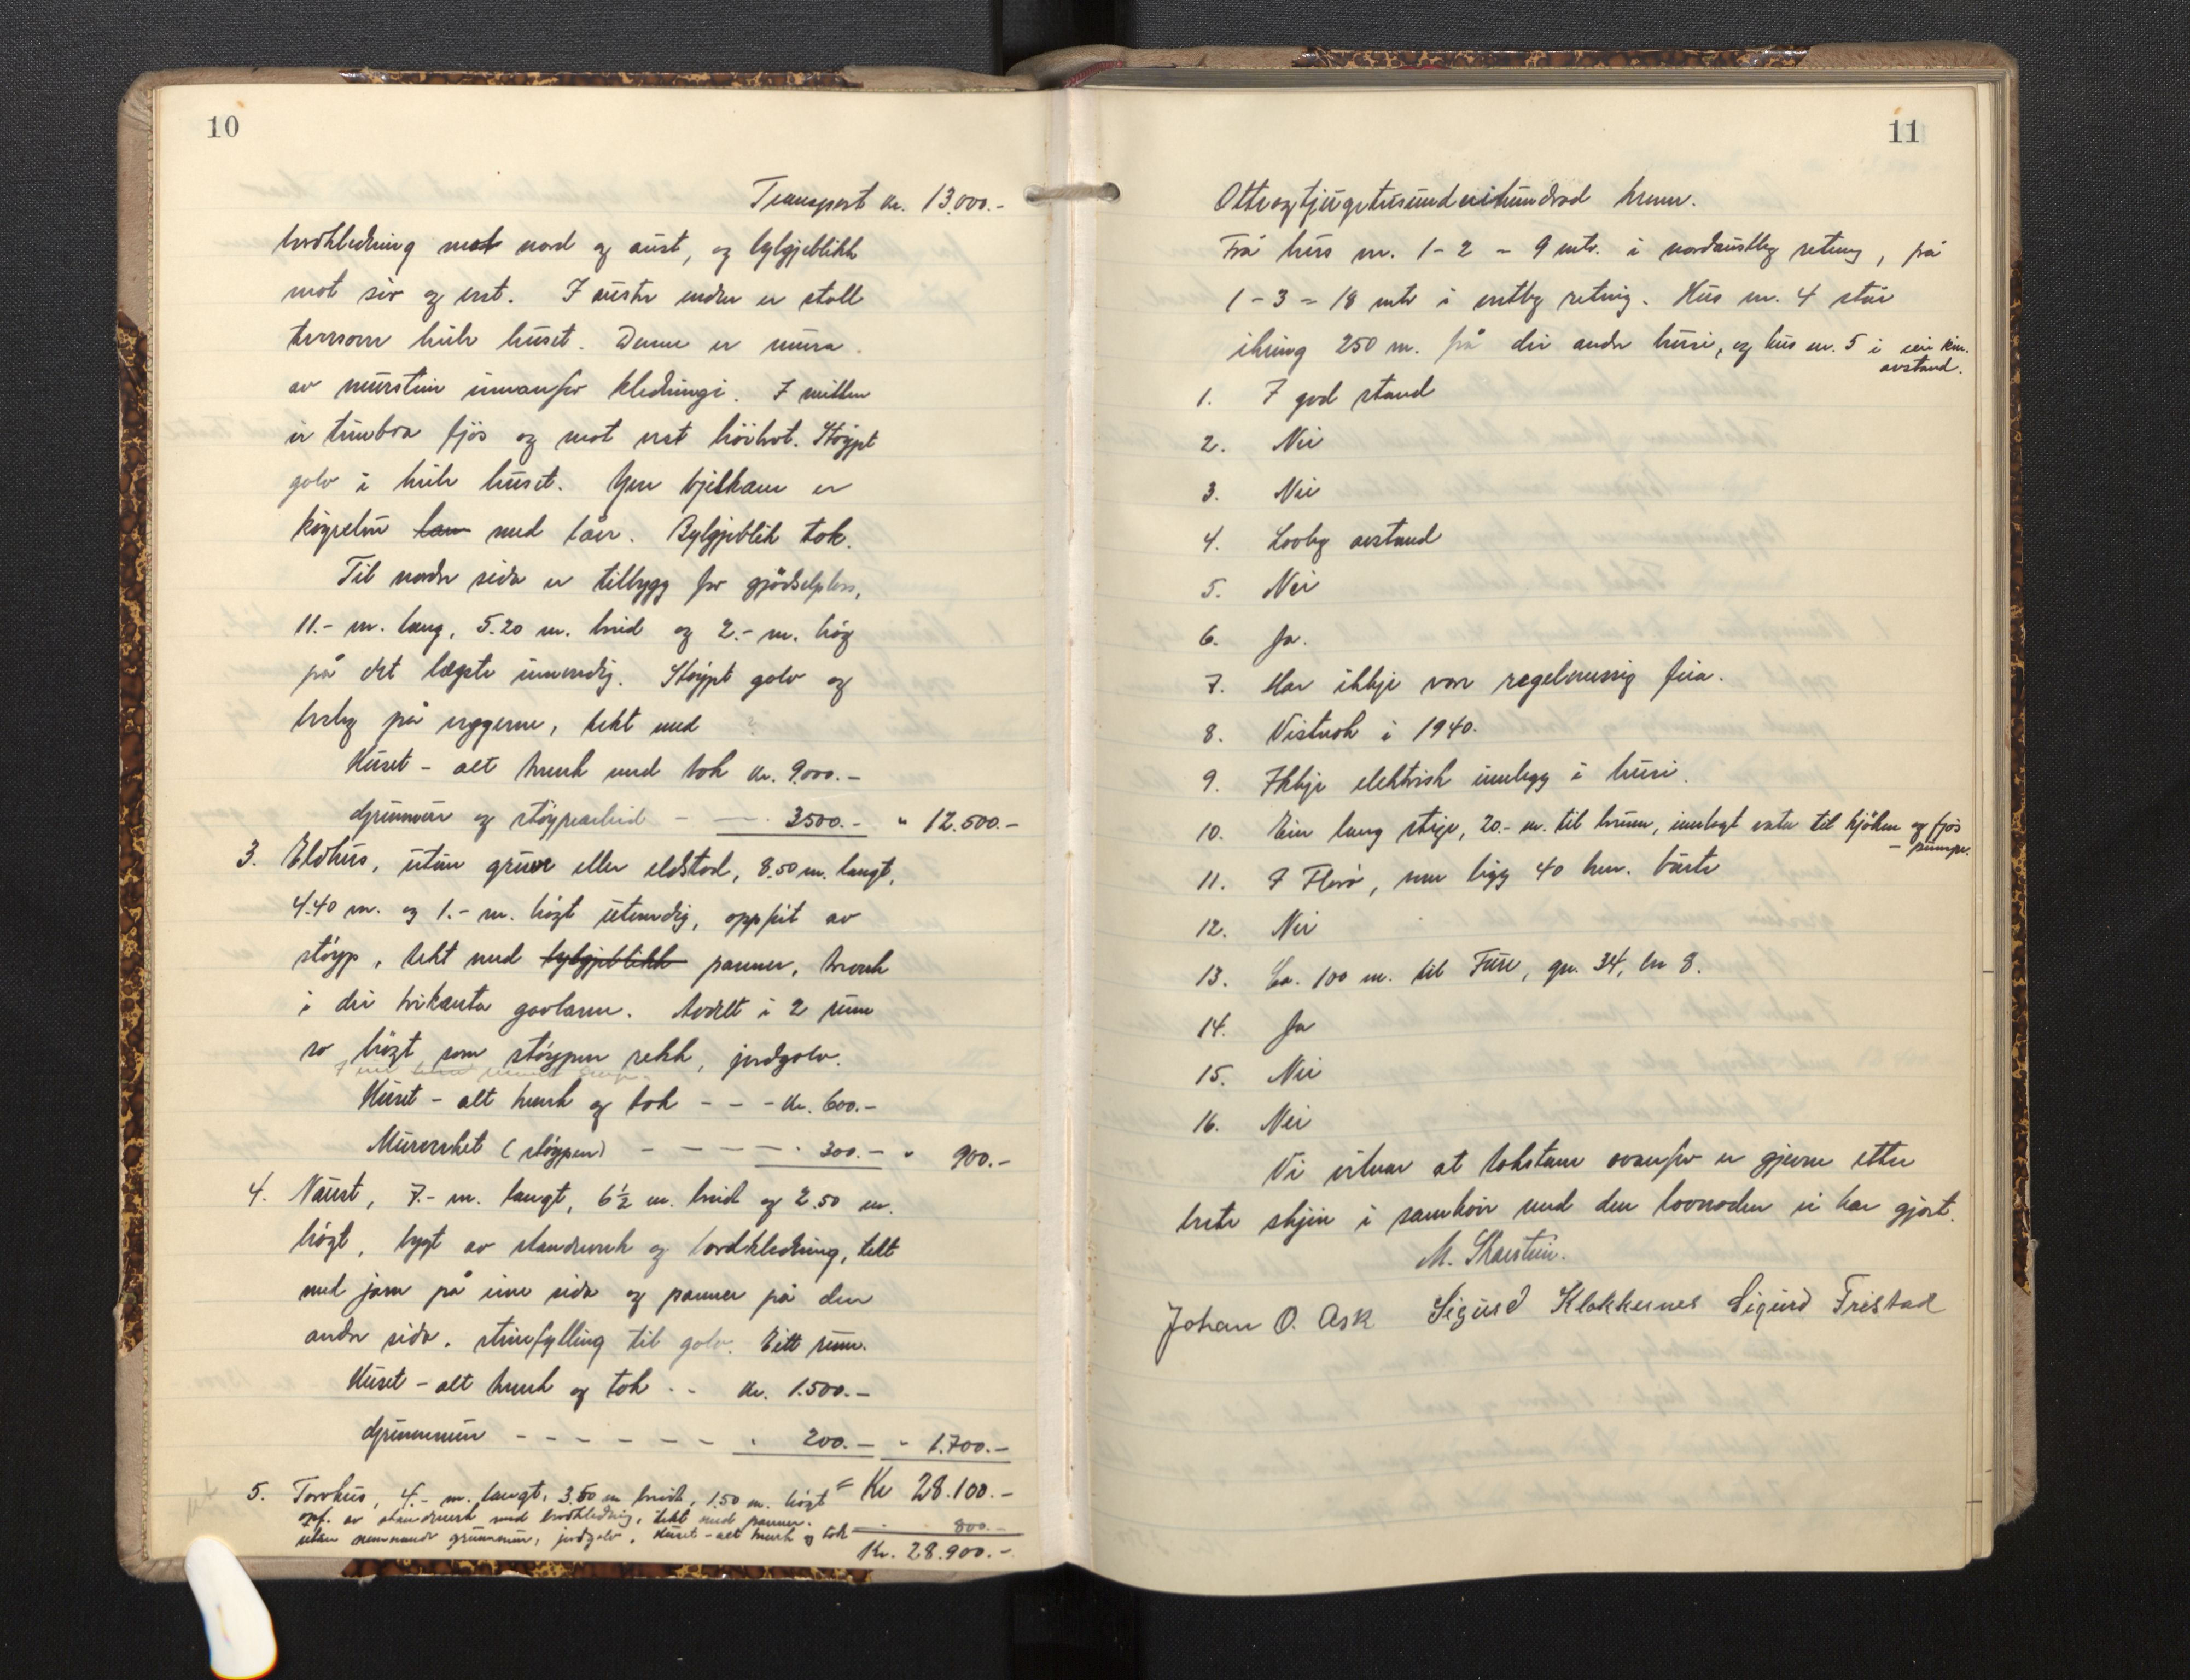 10
Transport kr. 13.000.-
bordkledning mot nord og aust, og bylgjeblikk
mot sør og vest. I austre enden er stall
tversover heile huset. Denne er mura
av murstein innanfor kledningi. I midten
er timbra fjøs og mot vest höirot. Støypt
golv i heile huset. Yver bjelkane er
köyrebru med låve. Bylgjeblik tak.
Til nordre sida er tilbygg for gjødselplass,
11.- m. lang, 5.20 m. breid og 2.- m. høg
på det lægste innvendig. Støypt golv og
på veggerne, tekt med ?
Huset - alt treverk med tak kr. 9.000.-
Grunnmur og støypearbeid - — 3500.- " 12.500.-
3. Eldhus, utan gruve eller eldstad, 8.50 m. langt,
4.40 m. og 1.- m. høgt utvendig, oppsett av
støyp, tekt med bylgjeblikk panner, treverk
i dei trikanta gavlane. Avdelt i 2 rum
so høgt som støypen rekk, jordgolv.
Huset - alt treverk og tak - - - kr. 600.-
Murverket (støypen) - - - - - 300.- " 900.-
4. Naust, 7.- m. langt, 6½ m. breid og 2.50 m.
høgt, bygt av standverk og bordkledning, tekt
med jarn på eine sida og panner på den
andre sida. steinfylling til golv. Eitt rum.
Huset - alt treverk og tak - - kr. 1.500.-
Grunnmur - - - - - - - 200.- " 1.700.-
5. Torvhus, 4.- m. langt, 3.50 m breidt, 1.50 m. høgt = Kr 28.100.-
opf. av standverk med bordkledning, tekt med panner.
utan nemnande grunnmur, jordgolv. Huset - alt treverk og tak — 800.-
Kr. 28.900.-
11
Otteogtjugetusundnihundrad kroner.
Frå hus nr. 1-2 = 9 mtr. i nordaustleg retning, frå
1-3 = 18 mtr i vestleg retning. Hus nr. 4 står
ikring 250 m. frå dei andre husi, og hus nr. 5 i ein km.
avstand.
1. I god stand
2. Nei
3. Nei
4. Lovleg avstand
5. Nei
6. Ja.
7. Har ikkje vore regelmessig feia.
8. Vistnok i 1940.
9. Ikkje elektrisk innlegg i husi.
10. Ein lang stige, 20.- m. til brunn, innlagt vatn til kjøken og fjös
- pumpe.
11. I Florø, som ligg 40 km. borte
12. Nei
13. Ca. 100 m. til Fure, gr. 34, br 8.
14. Ja
15. Nei
16. Nei
Vi vitnar at takstane ovanfor er gjevne etter
beste skjøn i samhøve med den lovnaden vi har gjort.
M. Skarstein.
Johan O. Ask Sigurd Klakkernes Sigurd Fristad